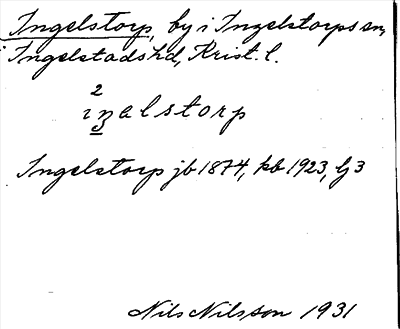 Ingelstorp, by i Ingelstorps sn,
i Ingelstads hd, Krist. l.
2
iŋalstorp
Ingelstorp jb 1874, kb 1923, lj 3
Nils Nilsson 1931